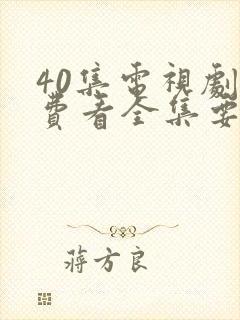 40集電視劇
費看全集要
蔣方良